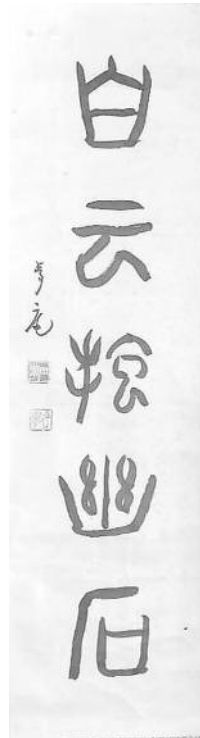 白云抱幽石